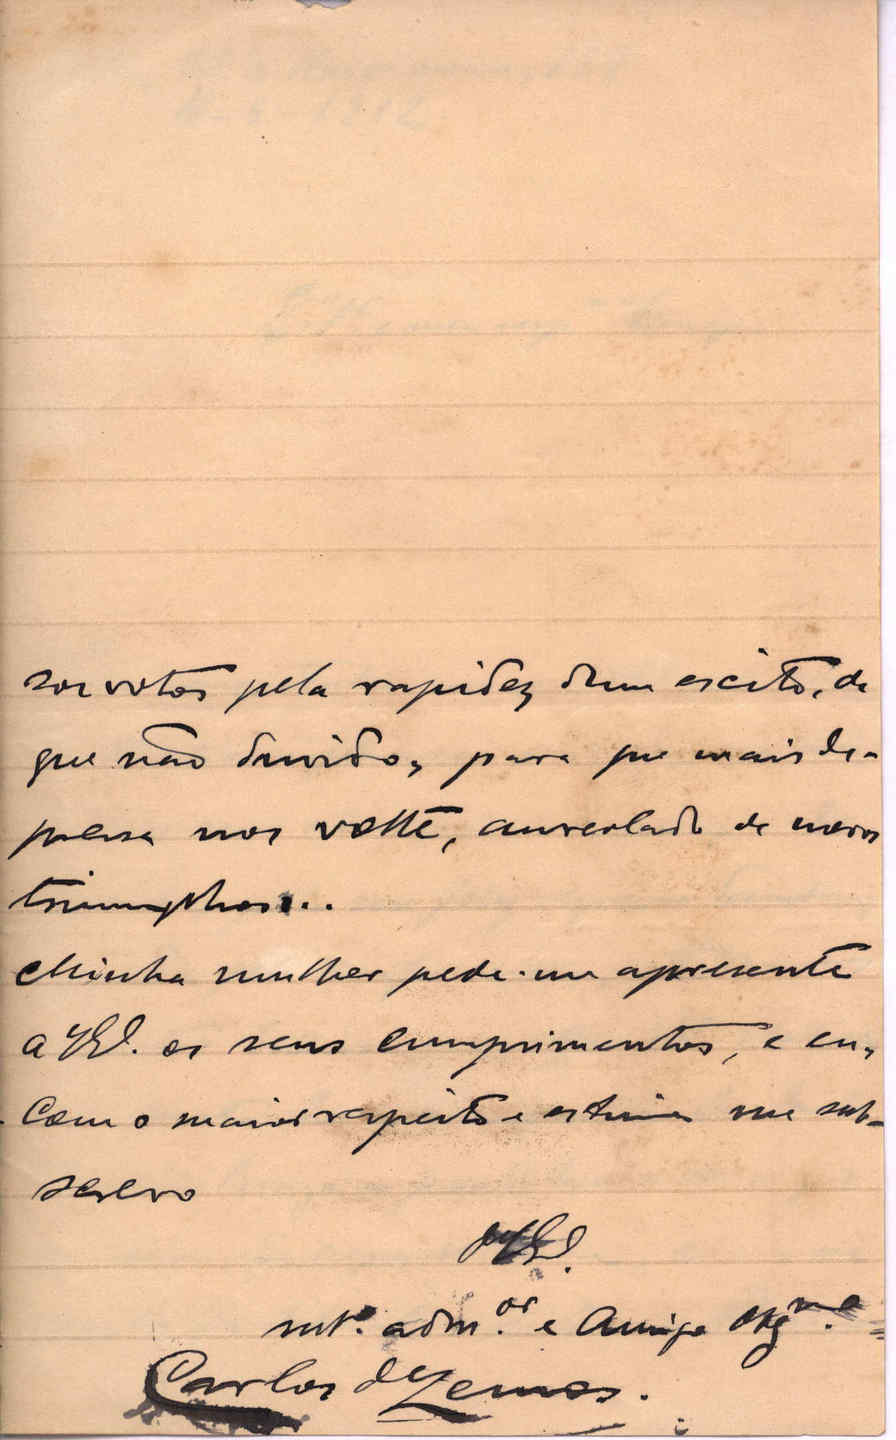 sos votos pela rapidez dum escito, de
que não duvido, para que mais de-
pressa nos volte, aureolado de novos
triumphos...
Minha mulher pede-me apresente
a V. Ex.ª os seus cumprimentos, e eu,
com o maior respeito e estima me sub-
screvo
mt.º adm.ºr e Amigo Obg.mo
Carlos de Lemos.